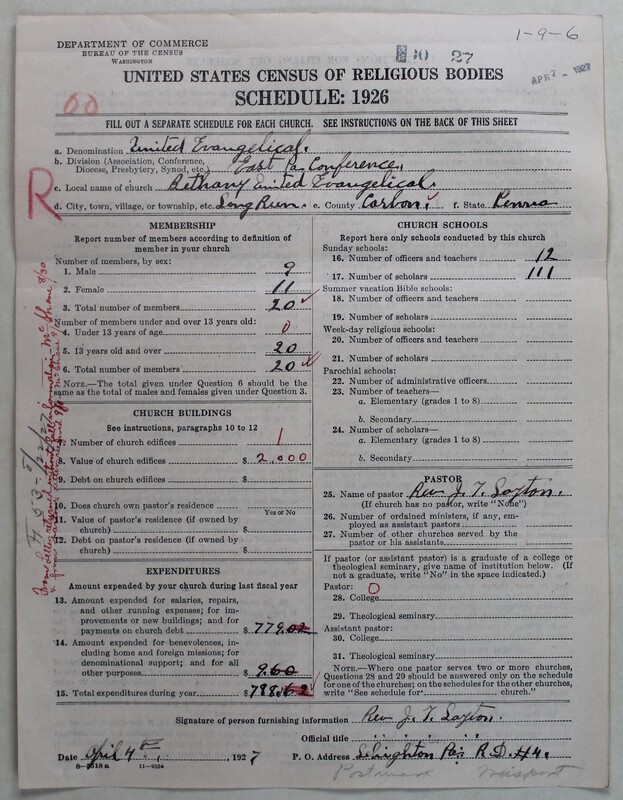 1-9-6
DEPARTMENT OF COMMERCE
BUREAU OF THE CENSUS
WASHINGTON
30 27
APR 7 - 1927
UNITED STATES CENSUS OF RELIGIOUS BODIES
SCHEDULE: 1926
00
FILL OUT A SEPARATE SCHEDULE FOR EACH CHURCH. SEE INSTRUCTIONS ON THE BACK OF THIS SHEET
a. Denomination United Evangelical.
b. Division (Association, Conference, Diocese, Presbytery, Synod, etc.) East Pa Conference.
c. Local name of church Bethany United Evangelical.
d. City, town, village, or township, etc. Long Run. e. County Carbon. f. State Penna
R
MEMBERSHIP
Report number of members according to definition of
member in your church
Number of members, by sex:
1. Male 9
2. Female 11
3. Total number of members 20
Number of members under and over 13 years old:
4. Under 13 years of age 0
5. 13 years old and over 20
6. Total number of members 20
NOTE.—The total given under Question 6 should be the
same as the total of males and females given under Question 3.
CHURCH BUILDINGS
See instructions, paragraphs 10 to 12
7. Number of church edifices 1
8. Value of church edifices $ 2,000
9. Debt on church edifices $
10. Does church own pastor's residence?
Yes or No
11. Value of pastor's residence (if owned by
church) $
12. Debt on pastor's residence (if owned by
church) $
EXPENDITURES
Amount expended by your church during last fiscal year
13. Amount expended for salaries, repairs,
and other running expenses; for im-
provements or new buildings; and for
payments on church debt $ 779.02
14. Amount expended for benevolences, in-
cluding home and foreign missions; for
denominational support; and for all
other purposes $ 9.60
15. Total expenditures during year $ 788.62
CHURCH SCHOOLS
Report here only schools conducted by this church
Sunday schools:
16. Number of officers and teachers 12
17. Number of scholars 111
Summer vacation Bible schools:
18. Number of officers and teachers
19. Number of scholars
Week-day religious schools:
20. Number of officers and teachers
21. Number of scholars
Parochial schools:
22. Number of administrative officers
23. Number of teachers—
a. Elementary (grades 1 to 8)
b. Secondary
24. Number of scholars—
a. Elementary (grades 1 to 8)
b. Secondary
PASTOR
25. Name of pastor Rev J. T. Saxton.
(If church has no pastor, write "None")
26. Number of ordained ministers, if any, em-
ployed as assistant pastors
27. Number of other churches served by the
pastor or his assistants
If pastor (or assistant pastor) is a graduate of a college or
theological seminary, give name of institution below. (If
not a graduate, write "No" in the space indicated.)
Pastor: O
28. College
29. Theological seminary
Assistant pastor:
30. College
31. Theological seminary
NOTE.—Where one pastor serves two or more churches,
Questions 28 and 29 should be answered only on the schedule
for one of the churches; on the schedules for the other churches,
write "See schedule for church."
Signature of person furnishing information Rev J. T. Saxton.
Official title " " "
Date April 4th, 1927 P. O. Address Lehighton Pa. R.D. #4.
8-2518 a 11-9254
Postmark Weissport